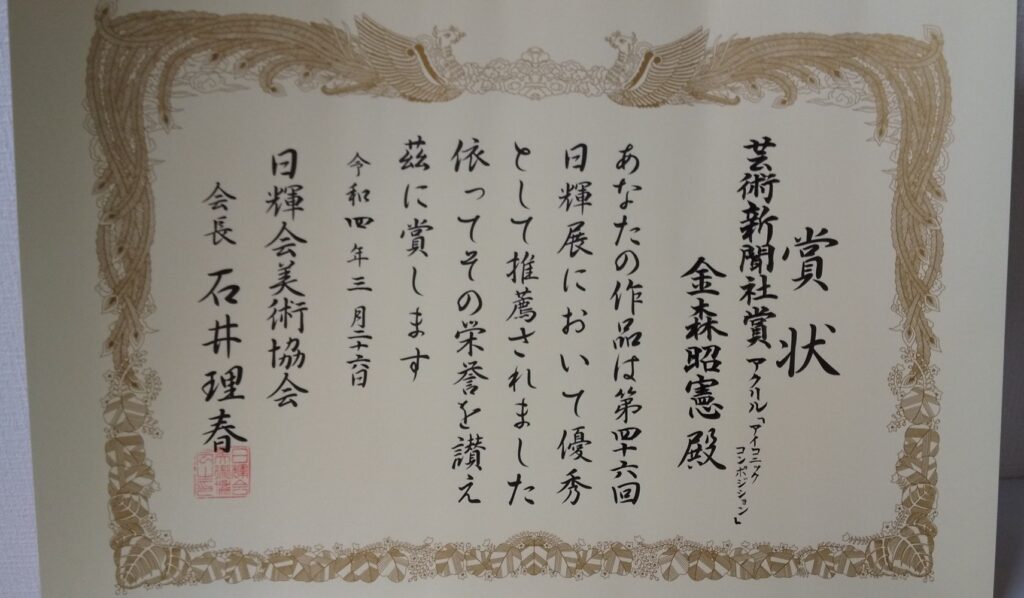 賞状
芸術新聞社賞 アクリル「アイコニックコンポジション」
金森昭憲殿
あなたの作品は第四十六回
日輝展において優秀
として推薦されました
依ってその栄誉を讃え
茲に賞します
令和四年三月二十六日
日輝会美術協会
会長 石井理春